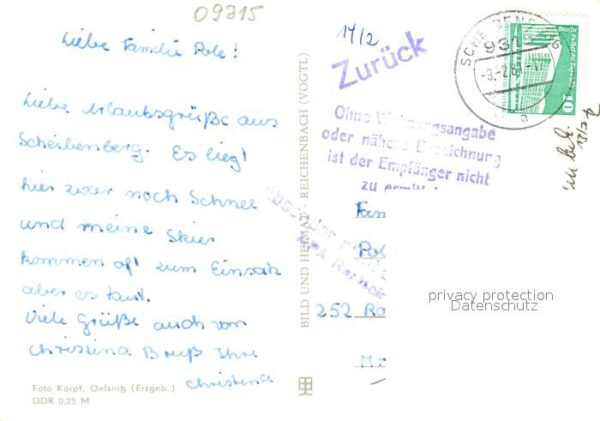 09315
Liebe Familie Pole!
Liebe Urlaubsgrüße aus
Scheibenberg. Es liegt
hier zwar noch Schnee
und meine Skier
kommen oft zum Einsatz
aber es taut.
Viele Grüße auch von
Christina Ihre
Christina
Foto Karpf, Oelsnitz (Erzgeb.)
DDR 0,25 M
BILD UND HEIMAT REICHENBACH (VOGTL)
17/2
Zurück
Ohne
oder nähere
ist der Empfänger nicht
zu
SCHEIBENBERG
931
a
10
Fam
252 Ro
privacy protection
Datenschutz